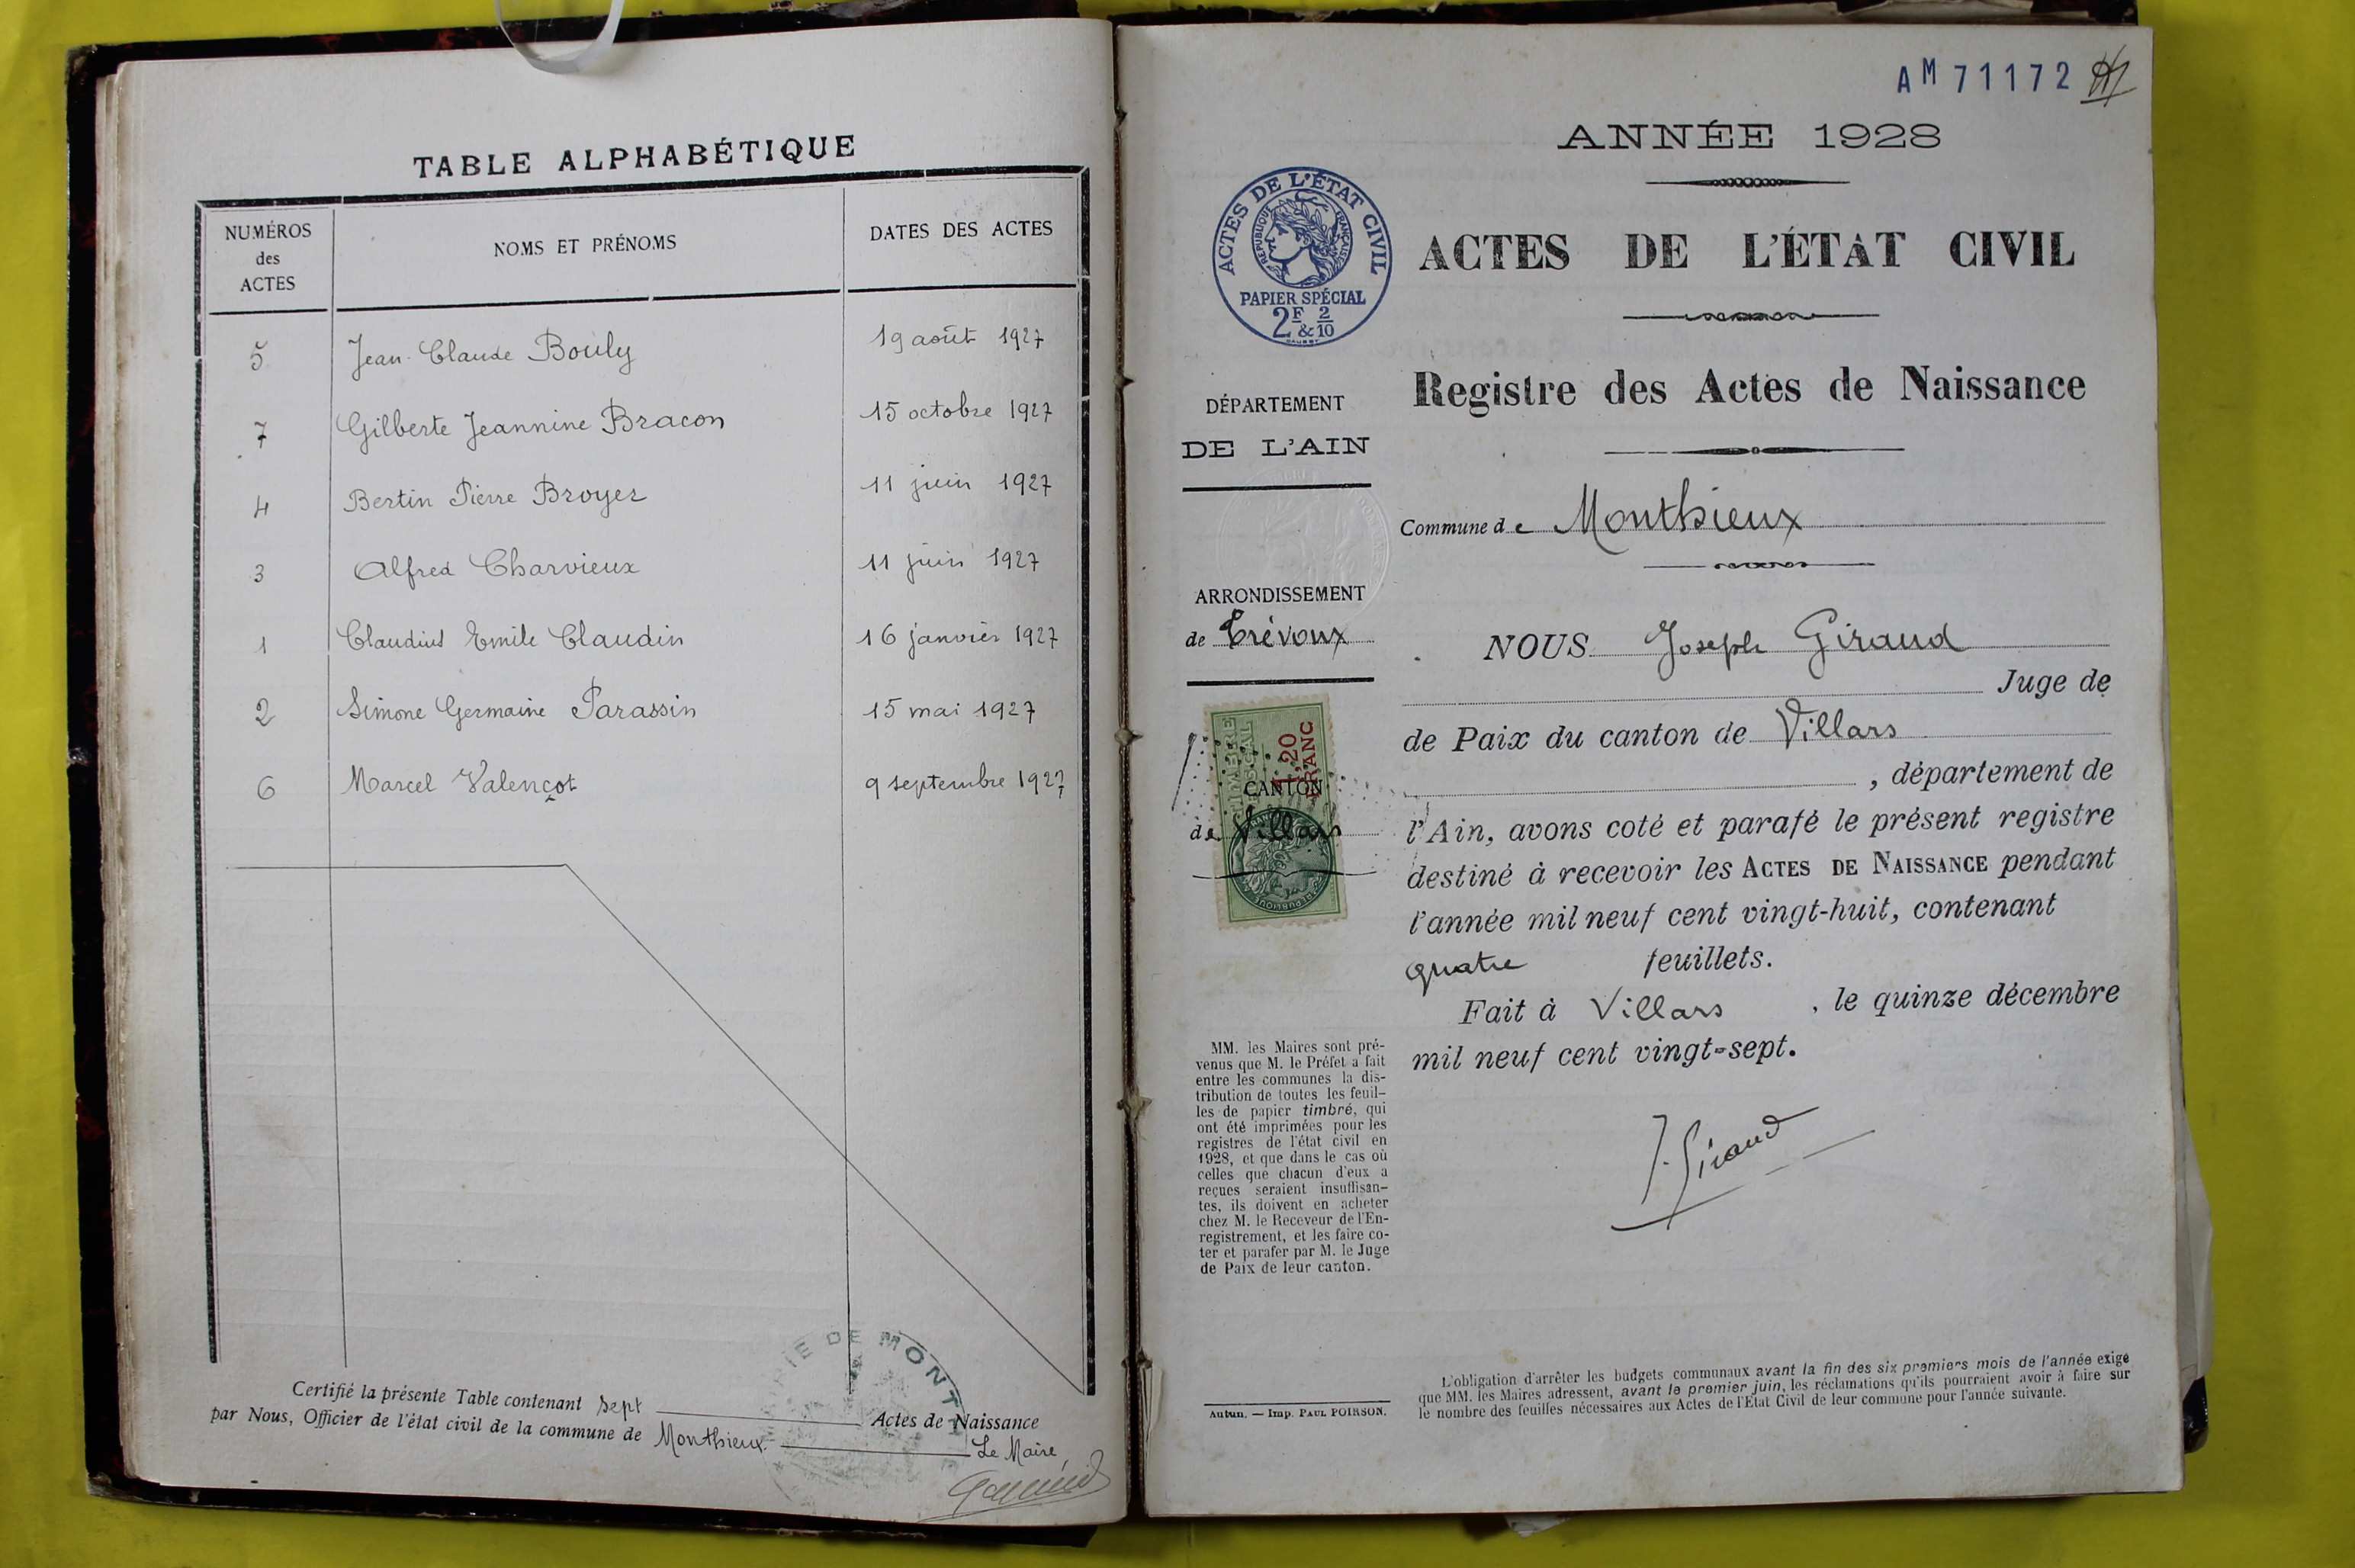 TABLE ALPHABÉTIQUE
NUMÉROS
des
ACTES
NOMS ET PRÉNOMS
DATES DES ACTES
5 Jean-Claude Bouly 19 août 1927
7 Gilberte Jeannine Bracon 15 octobre 1927
4 Bertin Pierre Broyer 11 juin 1927
3 Alfred Charvieux 11 juin 1927
1 Claudius Emile Claudin 16 janvier 1927
2 Simone Germaine Parassin 15 mai 1927
6 Marcel Valençot 9 septembre 1927
Certifié la présente Table contenant sept Actes de Naissance
par Nous, Officier de l'état civil de la commune de Monthieux
Le Maire,
RIE DE MONT
AM 71172
ANNÉE 1928
ACTES DE L'ÉTAT CIVIL
RÉPUBLIQUE FRANÇAISE
PAPIER SPÉCIAL
2F & 2/10
ACTES DE L'ÉTAT CIVIL
Registre des Actes de Naissance
DÉPARTEMENT
DE L'AIN
Commune de Monthieux
ARRONDISSEMENT
de Trévoux
TIMBRE
FISCAL
1,20
FRANC
CANTON
de Villars
NOUS Joseph Giraud
Juge de
de Paix du canton de Villars
, département de
l'Ain, avons coté et parafé le présent registre
destiné à recevoir les ACTES DE NAISSANCE pendant
l'année mil neuf cent vingt-huit, contenant
quatre feuillets.
Fait à Villars, le quinze décembre
mil neuf cent vingt-sept.
J. Giraud
MM. les Maires sont pré-
venus que M. le Préfet a fait
entre les communes la dis-
tribution de toutes les feuil-
les de papier timbré, qui
ont été imprimées pour les
registres de l'état civil en
1928, et que dans le cas où
celles que chacun d'eux a
reçues seraient insuffisan-
tes, ils doivent en acheter
chez M. le Receveur de l'En-
registrement, et les faire co-
ter et parafer par M. le Juge
de Paix de leur canton.
Autun. — Imp. PAUL POIRSON.
L'obligation d'arrêter les budgets communaux avant la fin des six premiers mois de l'année exige
que MM. les Maires adressent, avant le premier juin, les réclamations qu'ils pourraient avoir à faire sur
le nombre des feuilles nécessaires aux Actes de l'État Civil de leur commune pour l'année suivante.